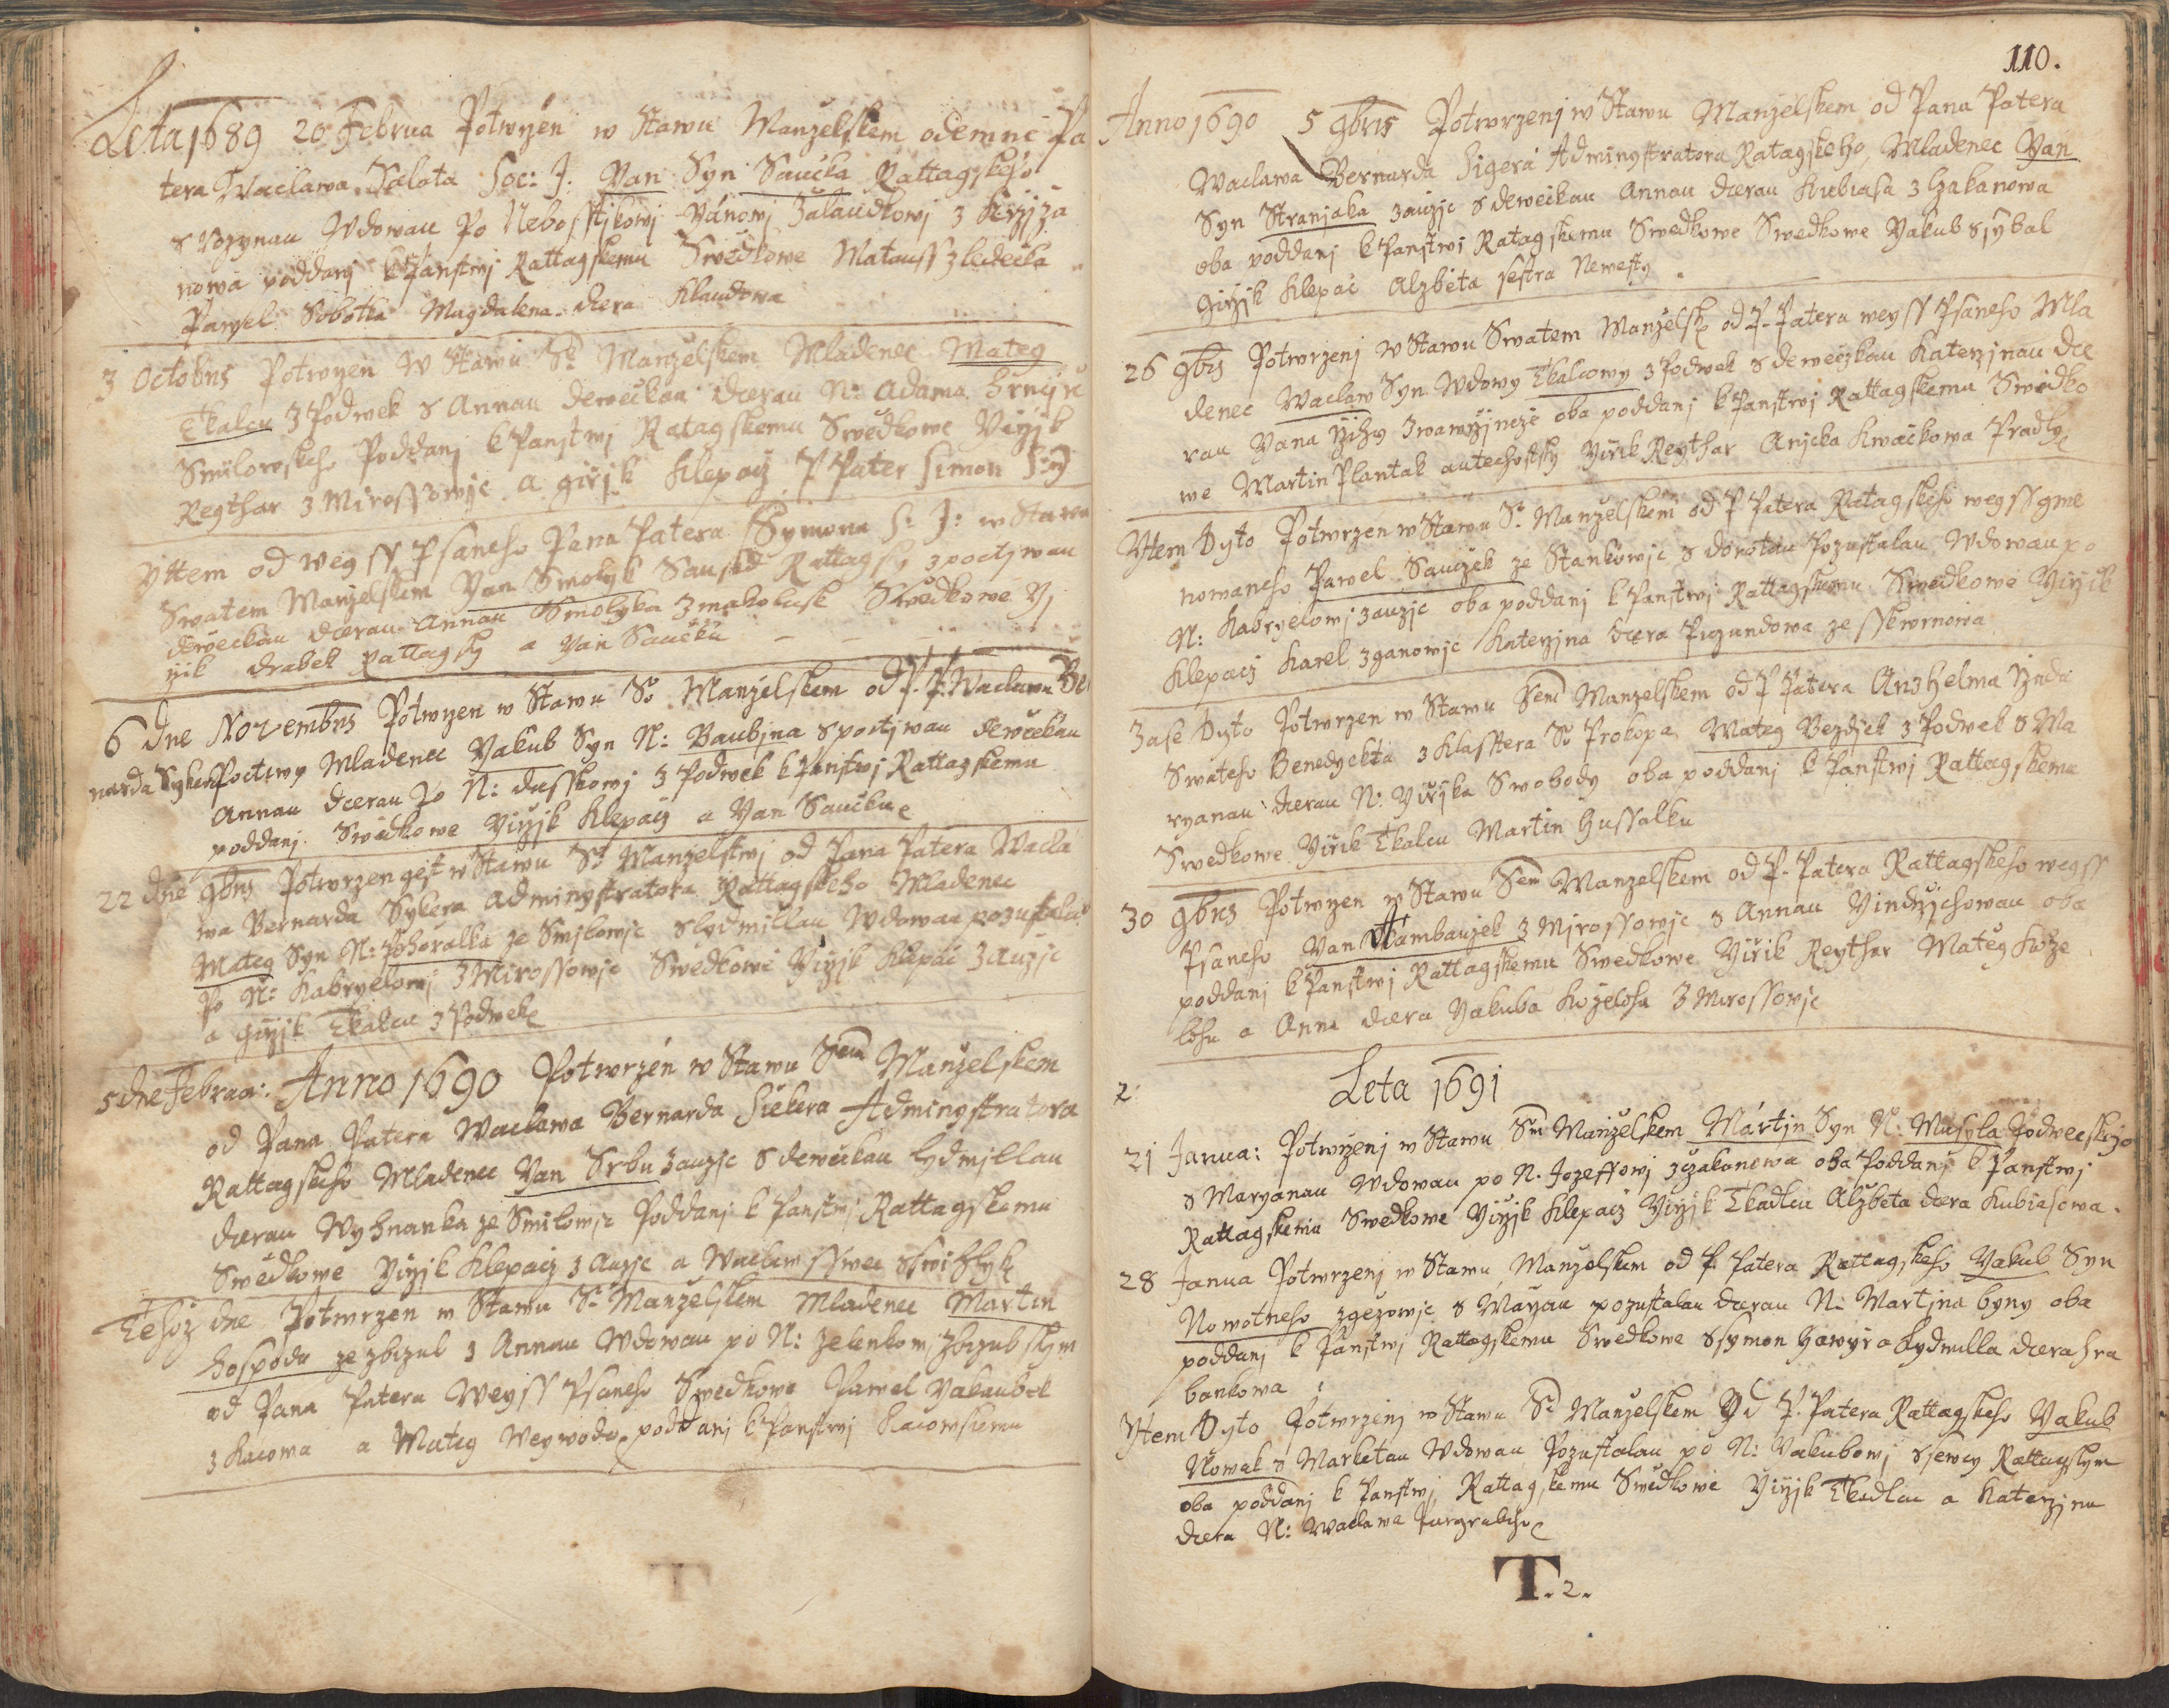 Leta 1689 20 Februa Potwrzen w Stawu Manzelskem odemne Pa
tera Waclawa Salata Soc: J: Yan Syn Saucka Rattagskeho
s Rozynau Wdowau Po Nebosstjkowi Yánowj Zalaudkowj z
nowa poddanj k Panstwj Rattagskemu Swedkowe Matauss z ledecka
Pawel Sobotka Magdalena dcera Klaudowa
3 Octobris Potwrzen w Stawu Se Manzelskem Mladenec Mateg
Tkalcu z Podwek s Annau deweckau dcerau N: Adama
Smilowskeho Poddanj k Panstwj Ratagskemu Swedkowe Yirzjk
Regthar z Mirossowjc a girzjk Klepacz P Pater Simon
Yttem od wegss Psaneho Pana Patera Symona S: J: w Stawu
Swatem Manzelskem Yan Smolyk Saused Rattagsky z poctjwau
deweckau dcerau Annau Smolyka z makolusk Swedkowe Yj
rzik drabek Rattagsky a Yan Saucku
6 dne Novembris Potwrzen w Stawu So Manzelskem od P. P. Waclawa Ber
narda Sykery Poctiwy Mladenec Yakub Syn N: Baubjna s poctjwau deweckau
Annau dcerau Po N: dusskowj z Podwek k Panstwj Rattagskemu
poddanj Swedkowe Yirzjk Klepacz a Yan Saucku
22 dne 9bris Potwrzen gest w Stawu So Manzelstwj od Pana Patera Wacla
wa Bernarda Sykera Administratora Rattagskeho Mladenec
Mateg Syn N: Pohoralka ze Smilowjc s lydmillau Wdowau pozustalau
Po N: Kabryelowj z Mirossowjc Swedkowe Yirzjk Klepac z auzjc
a girzjk Tkalcu z Podwek
5 dne Februa: Anno 1690 Potwrzen w Stawu Sem Manzelskem
od Pana Patera Waclawa Bernarda Siekera Administratora
Rattagskeho Mladenec Yan Srbu z auzjc s deweckau lydmillau
dcerau Wyhnanka ze Smilowjc Poddanj k Panstwj Rattagskemu
Swedkowe Yirzjk Klepacz z auzjc a Waclaw sswec
Tehoz dne Potwrzen w Stawu So Manzelskem Mladenec Martin
hospoda ze zbizub z Annau Wdowau po N: Zelenkowj zbizubskym
od Pana Patera Weyss Psaneho Swedkowe Pawel Yakaubek
z Kacowa a Mateg Weywoda poddanj k Panstwj Kacowskemu
110.
Anno 1690 5 9bris Potwrzenj w Stawu Manzelskem od Pana Patera
Waclawa Bernarda Sigera Administratora Ratagskeho, Mladenec Yan
Syn Stranjaka z auzjc s deweckau Annau dcerau Kubiasa z
oba poddanj k Panstwj Ratagskemu Swedkowe Swedkowe Yakub ssybal
Girzjk Klepac Alzbeta sestra Newesty
26 9bris Potwrzenj w Stawu Swatem Manzelsk od P. Patera weyss Psaneho Mla
denec Waclaw Syn Wdowy Tkalcowy z Podwek s deweczkau Katerzjnau dce
rau Yana oba poddanj k Panstwj Rattagskemu Swedko
we Martin Plantak Yirik Regthar Anjcka Kwackowa Pradly
Yttem Dyto Potwrzen w Stawu So Manzelskem od P Patera Ratagskeho wegss gme
nowaneho Pawel Sauczek ze Stankowjc s dorotau Pozustalau Wdowau po
N: Kabryelowj z auzjc oba poddanj k Panstwj Rattagskemu Swedkowe Yirzik
Klepacz Karel z ganowjc Katerzjna dcera Prgundowa ze
Zase Dyto Potwrzen w Stawu Sem Manzelskem od P Patera Anzhelma
Swateho Benedyckta z Klasstera So Prokopa Mateg Bezdjek z Podwek s Ma
ryanau dcerau N: Yirjka Swobody oba poddanj k Panstwj Rattagskemu
Swedkowe Yirik Tkalcu Martin Hussalku
30 9bris Potwrzen w Stawu Sem Manzelskem od P. Patera Rattagskeho wegss
Psaneho Yan Hambaujek z Mjrossowjc s Annau Yindrzjchowau oba
poddanj k Panstwj Rattagskemu Swedkowe Yirik Regthar Mateg Koze
lohu a Anna dcera Yakuba Kozeloha z Mirossowjc
Leta 1691
21 Janua: Potwrzenj w Stawu Sm Manzelskem Mártjn Syn N: Musyla Podweckeho
s Maryanau Wdowau po N. Jozeffowj z czakanowa oba Poddanj k Panstwj
Rattagskemu Swedkowe Yirzjk Klepacz Yirzjk Tkadlcu Alzbeta dcera Kubiasowa.
28 Janua Potwrzenj w Stawu Manzelskem od P. Patera Rattagskeho Yakub Syn
Nowotneho z gezowjc s Maryau pozustalau dcerau N: Martjna byny oba
poddanj k Panstwj Rattagskemu Swedkowe Ssymon Hawyr a Lydmilla dcera hra
bankowa
Yttem Dyto Potwrzenj w Stawu So Manzelskem Od P. Patera Rattagskeho Yakub
Nowak s Marketau Wdowau Pozustalau po N: Yakubowj ssewcy Rattagskym
oba poddanj k Panstwj Rattagskemu Swedkowe Yirzjk Tkadlcu a Katerzjna
dcera N: Waclawa Purgrabiho
T. 2.